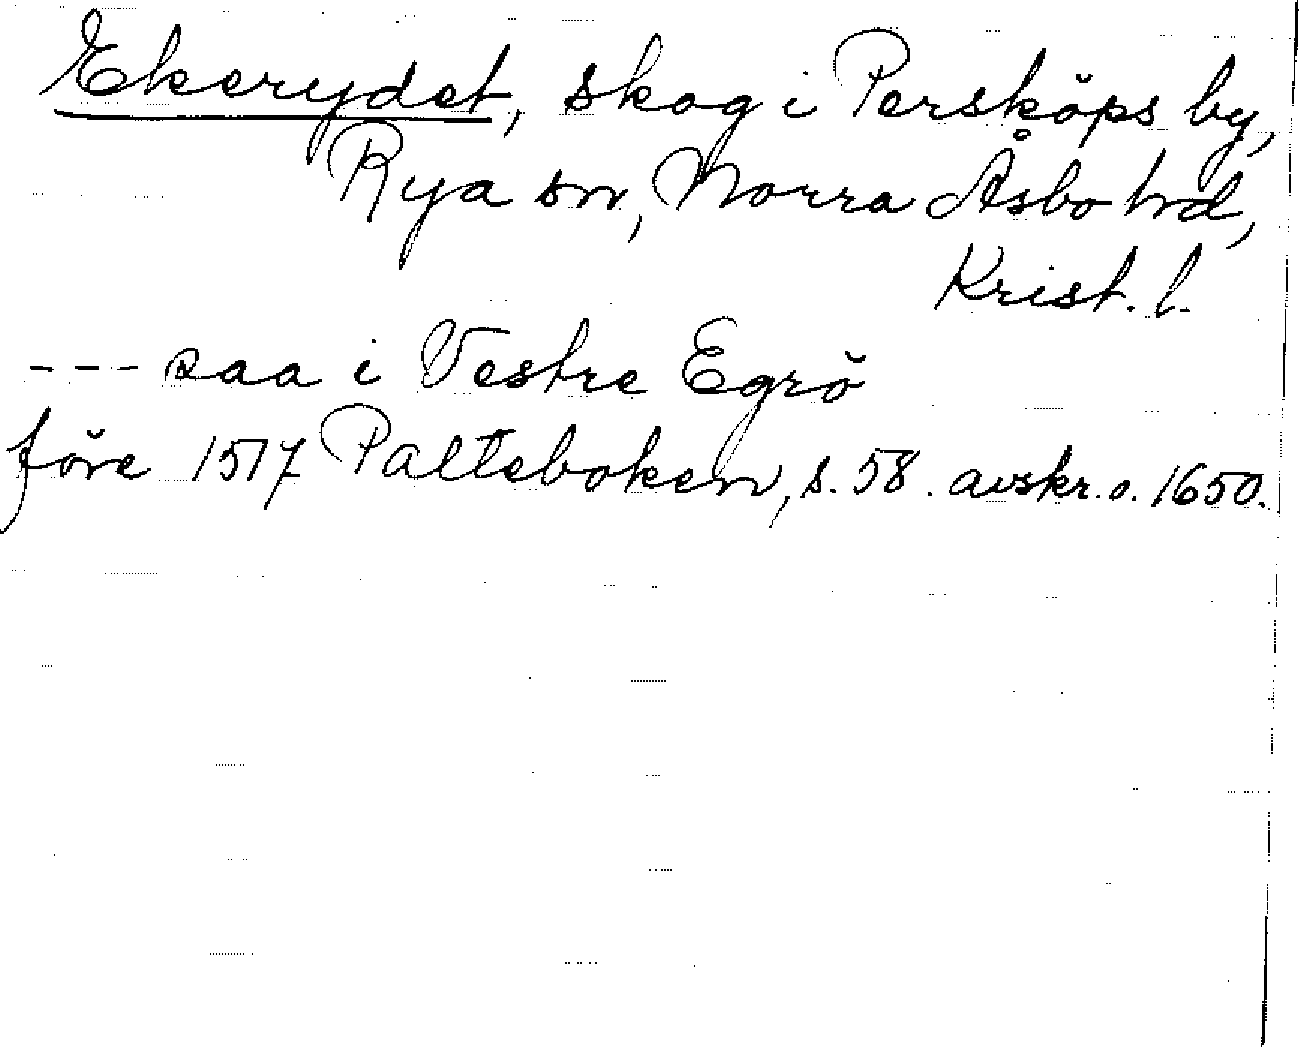 Ekerydet, skog i Persköps by,
Rya sn, Norra Åsbo hd,
Krist. l.
--- saa i Vestre Egrö
före 1517 Palteboken, s. 58. avskr. o. 1650.